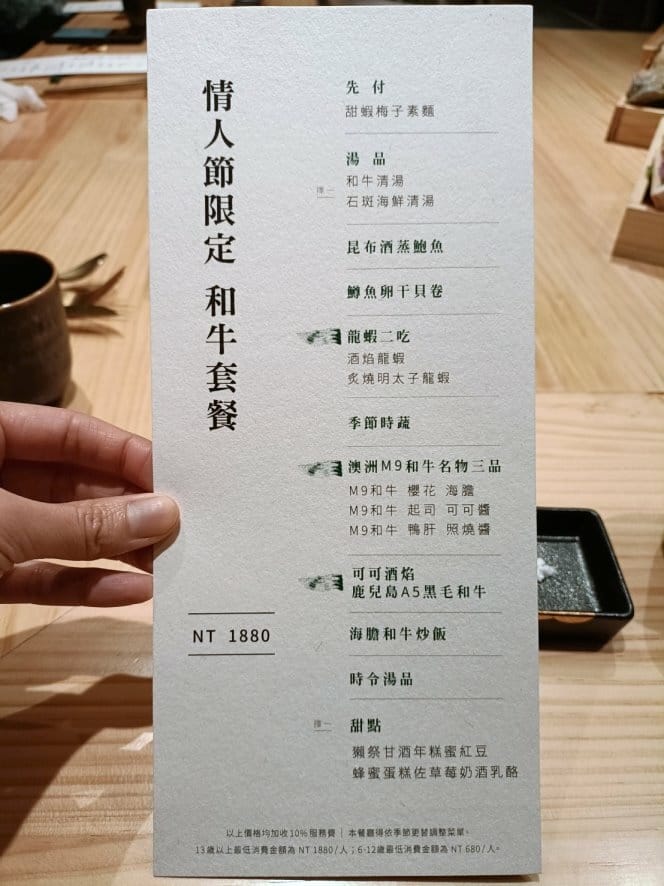 情人節限定 和牛套餐
NT 1880
先付
甜蝦梅子素麵
湯品
擇一
和牛清湯
石斑海鮮清湯
昆布酒蒸鮑魚
鱒魚卵干貝卷
龍蝦二吃
酒焰龍蝦
炙燒明太子龍蝦
季節時蔬
澳洲M9和牛名物三品
M9和牛 櫻花 海膽
M9和牛 起司 可可醬
M9和牛 鴨肝 照燒醬
可可酒焰
鹿兒島A5黑毛和牛
海膽和牛炒飯
時令湯品
擇一
甜點
獺祭甘酒年糕蜜紅豆
蜂蜜蛋糕佐草莓奶酒乳酪
以上價格均加收10%服務費｜本餐廳得依季節更替調整菜單。
13歲以上最低消費金額為 NT 1880/人；6-12歲最低消費金額為 NT 680/人。